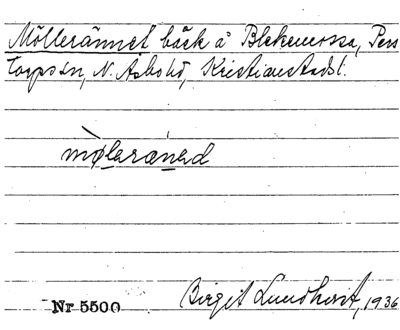 Möllerännet bäck å Blekemossa, Pers
torps sn, N. Åsbo hd, Kristianstads l.
mølaränad
Nr 5500 Birgit Lundkvist, 1936